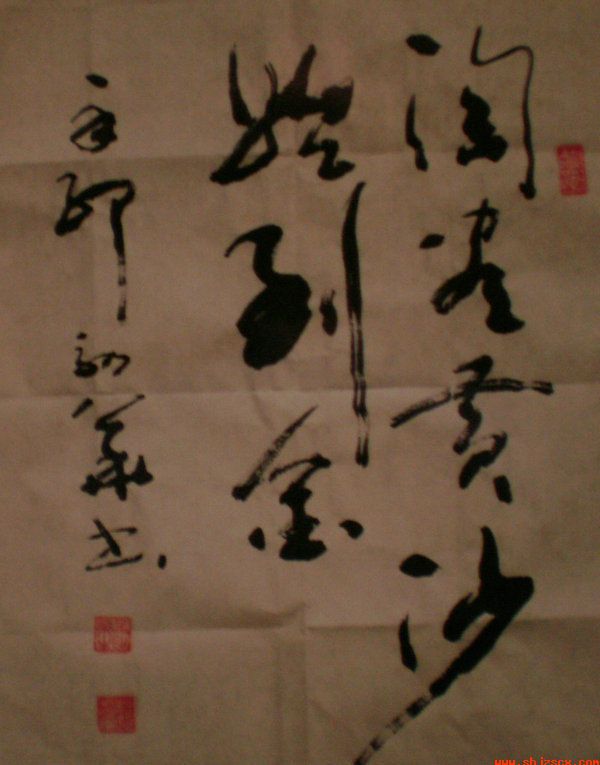 淘盡黄沙
始到金
辛卯 书
www.shjzscx.com